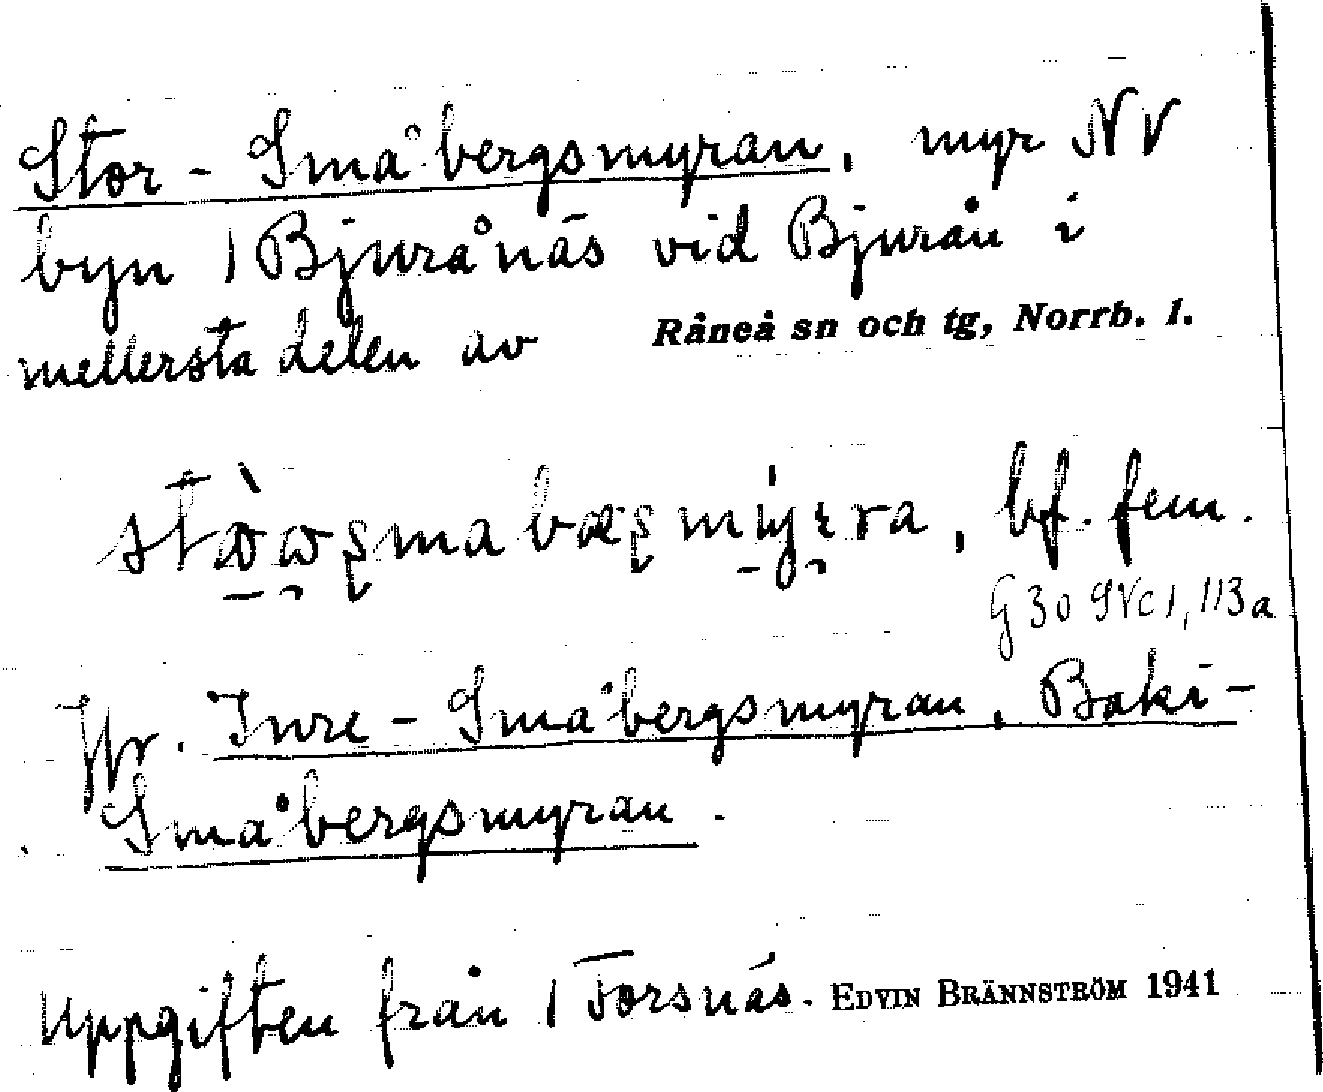 Stor-Småbergsmyran, myr NV
byn 1 Bjurånäs vid Bjurån i
mellersta delen av Råneå sn och tg, Norrb. l.
bf. fem.
G 30 9Vc1, 113a
Jfr. Inre-Småbergsmyran, Baki-
Småbergsmyran.
Uppgiften från 1 Forsnäs. EDVIN BRÄNNSTRÖM 1941